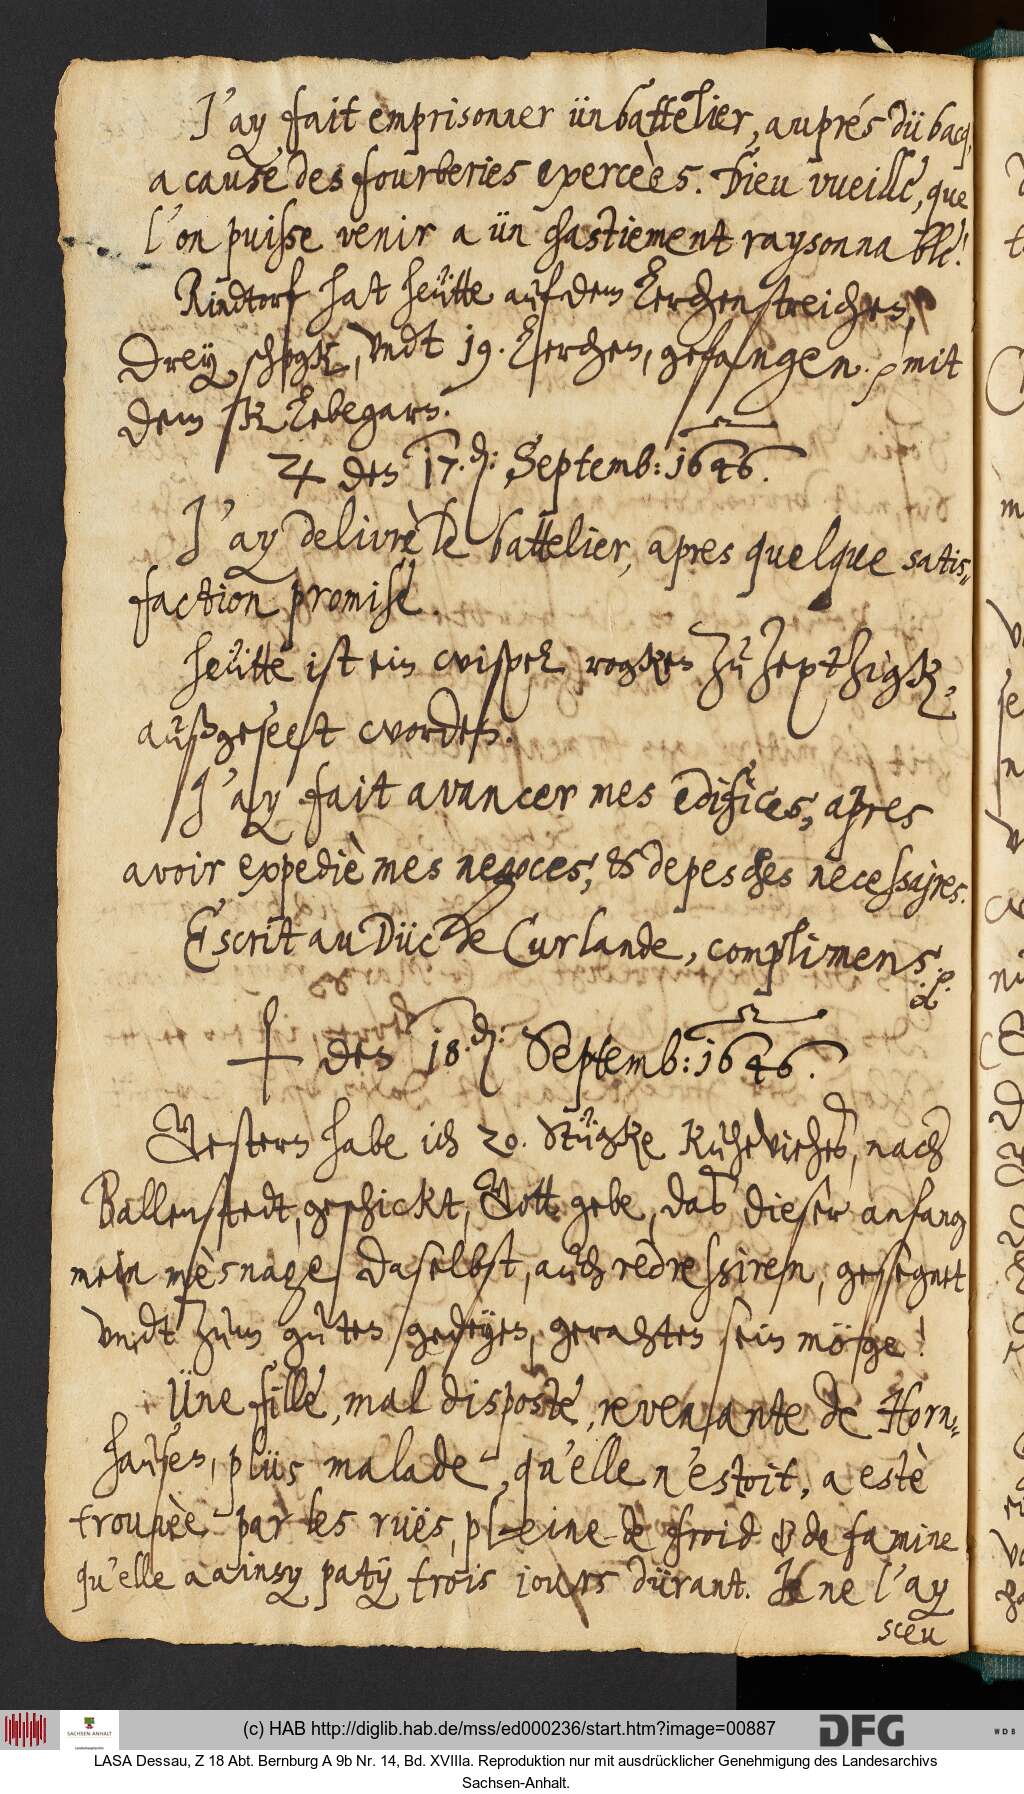 J'ay fait emprisonner ün battelier, auprés dü bacq,
a cause des fourberies exercèes. Dieu vueille, que
l'on puisse venir a ün chastiement raysonnable!
Rindtorf hat heütte auf dem Lerchenstreichen,
drey schogk, vndt 19. Lerchen, gefangen. mit
dem Klebegarn.
♃ den 17. Septemb: 1646.
J'ay delivrè le battelier, apres quelque satis-
faction promise.
Heütte ist ein wispel rogken zu Zepzigk,
außgeseet worden.
J'ay fait avancer mes edifices, apres
avoir expediè mes negoces, & depesches necessaires.
Escrit au Düc de Curlande, complimens
den 18. Septemb: 1646.
Gestern habe ich 20. Stügke Kuheviehes, nach
Ballenstedt, geschickt, Gott gebe, daß dieser anfang
mein mèsnage daselbst, auch redressiren, gesegnet
vndt zum guten gedeyen, gerahten sein möge!
Üne fille, mal disposte, revenante de Horn-
hausen, plüs malade, qu'elle n'estoit, a estè
trouvèe par les rües, pleine de froid & de famine
qu'elle a ainsy paty trois jours dürant. Je ne l'ay
sceu
(c) HAB http://diglib.hab.de/mss/ed000236/start.htm?image=00887
SACHSEN-ANHALT
DFG
WDB
LASA Dessau, Z 18 Abt. Bernburg A 9b Nr. 14, Bd. XVIIIa. Reproduktion nur mit ausdrücklicher Genehmigung des Landesarchivs
Sachsen-Anhalt.